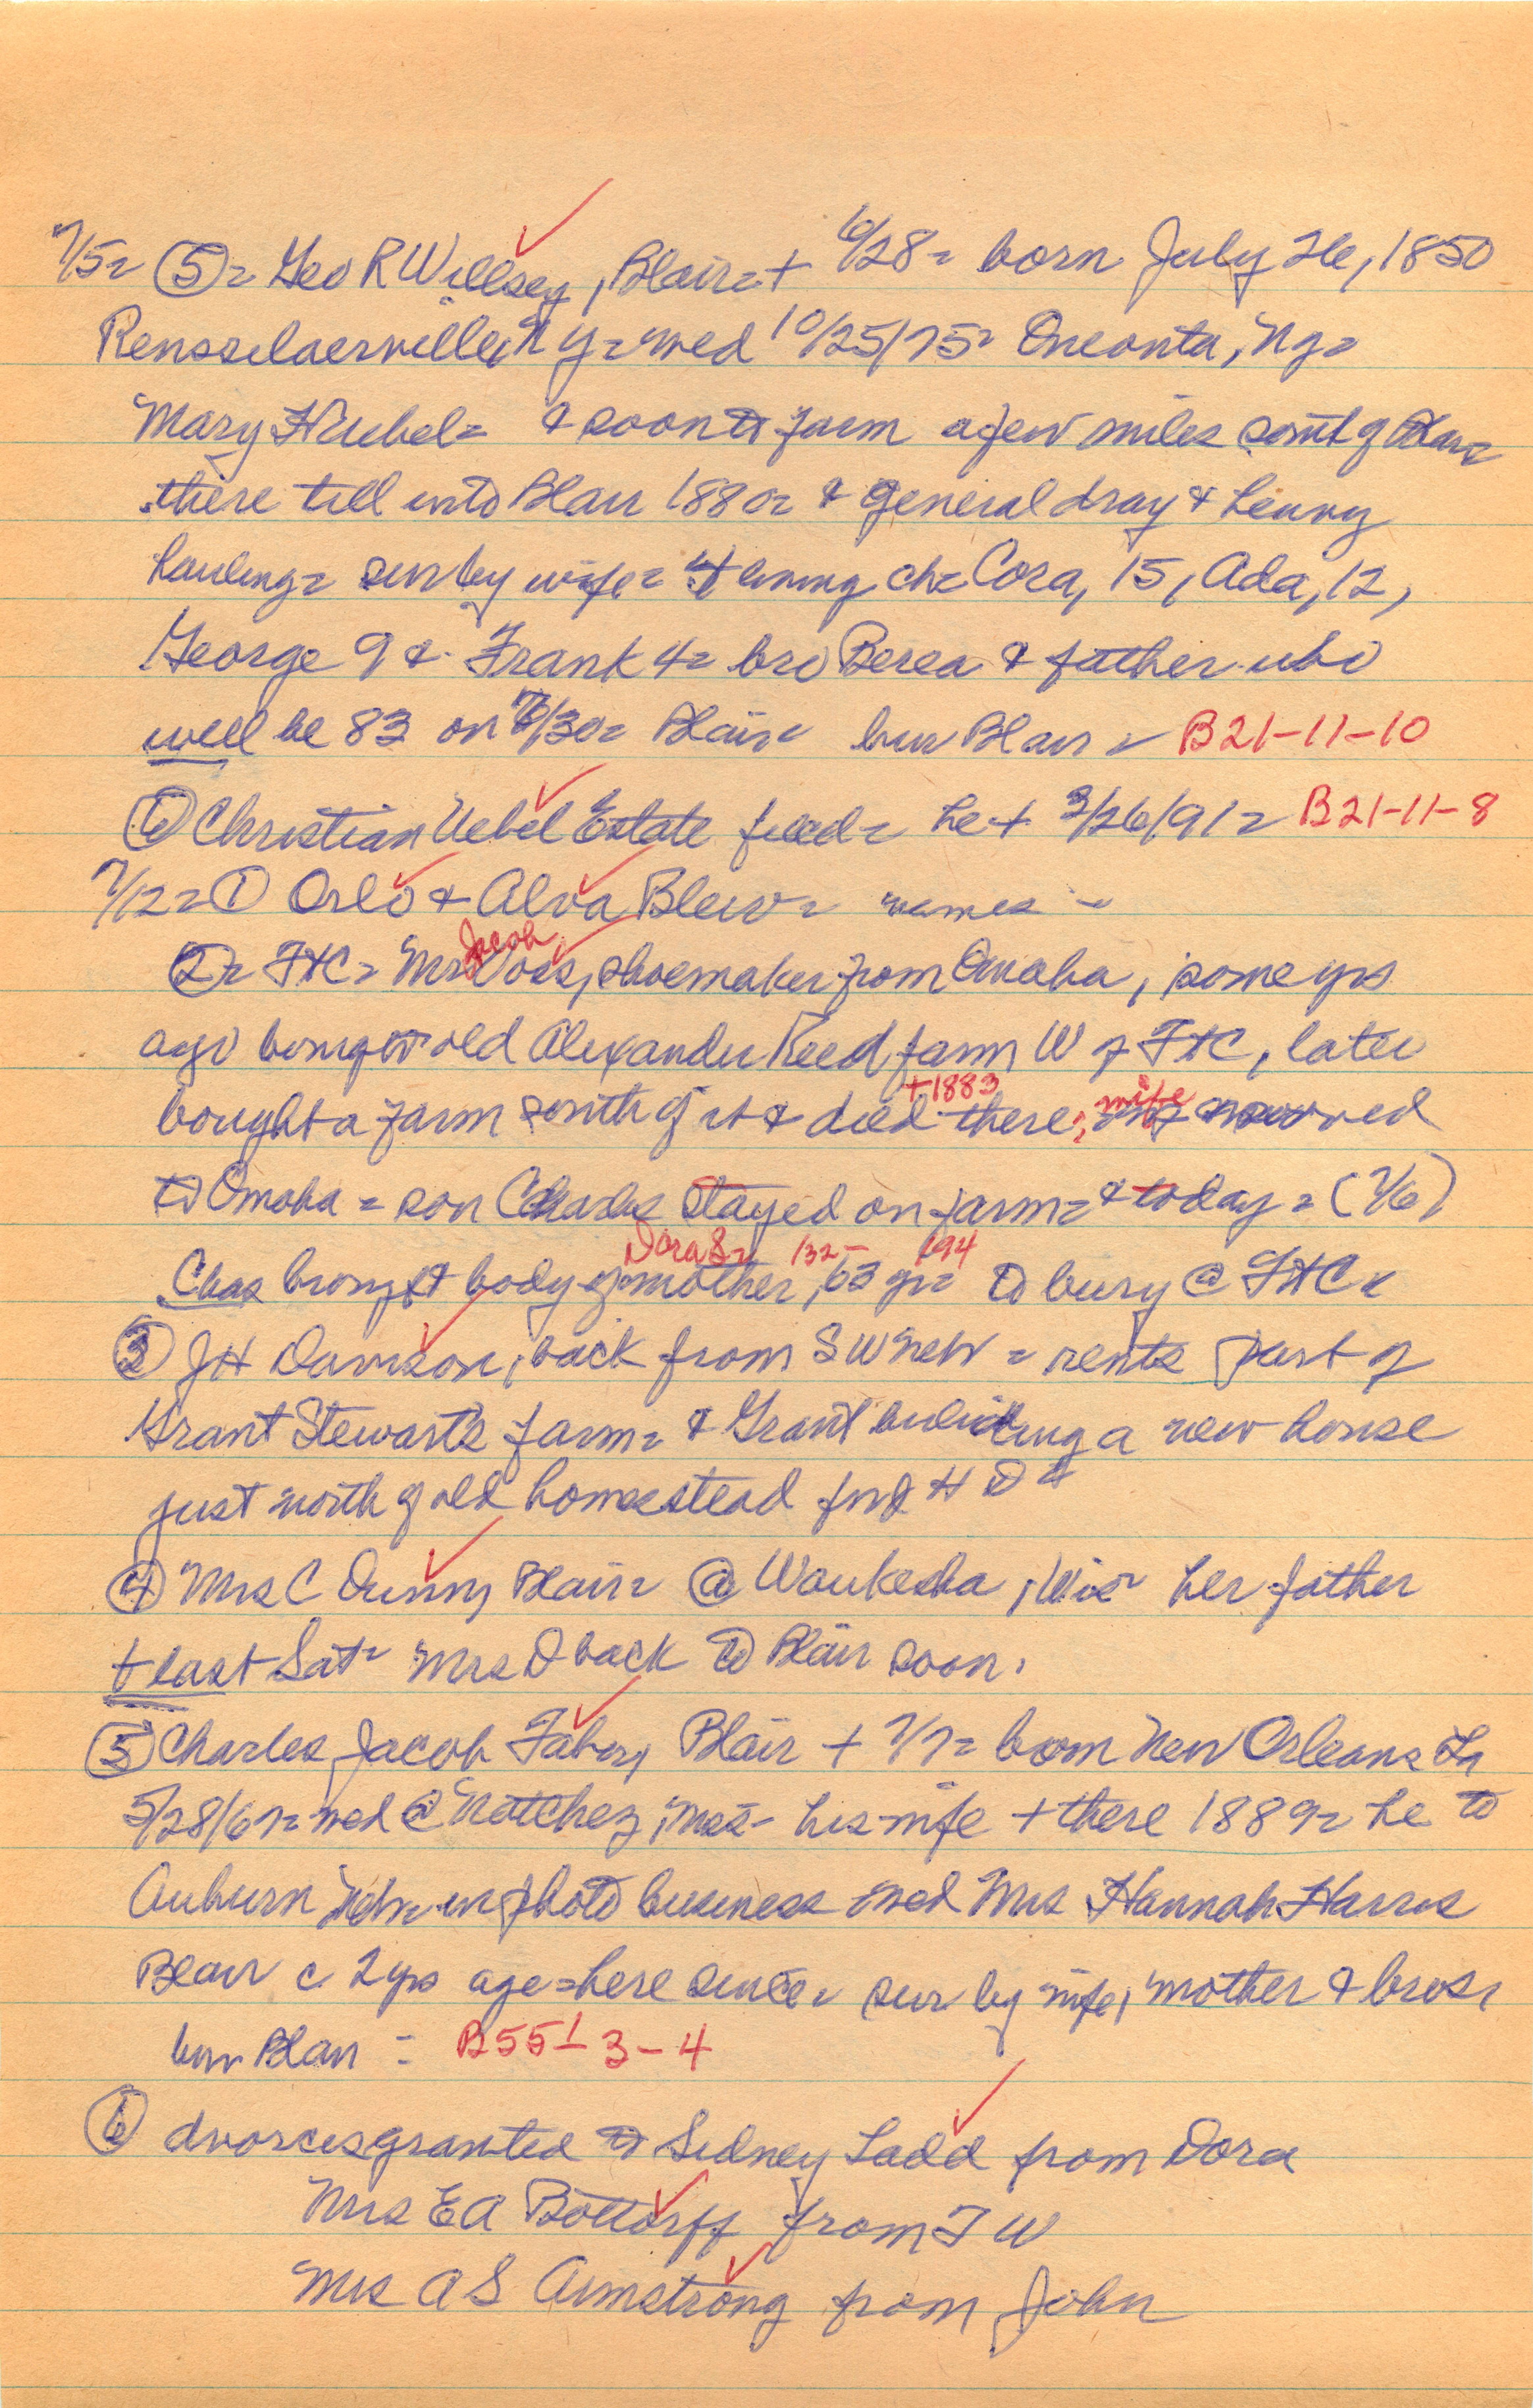 7/5= ⑤= Geo R Willsey, Blair= + 6/28= born July 26, 1850
Rensselaerville, N Y= wed 10/25/75= Oneonta, Ny=
Mary Huebel= & soon to farm a few miles south of Blair=
there till into Blair 1880= & general dray & heavy
hauling= sur by wife= 4 living ch= Cora, 15, Ada, 12,
George 9 & Frank 4= bro Berea & father who
will be 83 on 7/30= Blair= bur Blair = B21-11-10
⑥ Christian Uebel Estate filed= he + 3/26/91= B21-11-8
7/12= ① Orlo & Alva Blew= names =
②= FtC= Mr Jacob Voss, shoemaker from Omaha, some yrs
ago bought old Alexander Reed farm W of FtC, later
bought a farm south of it & died there, +1883 wife moved
to Omaha = son Charles stayed on farm= & today = (7/6)
Chas brought body of mother, 63 yr= Dora S= 132- 194 to bury @ FtC=
③ J H Davison, back from SW Neb = rents part of
Grant Stewart's farm= & Grant building a new house
just north of old homestead for J H D=
④ Mrs C Dunn, Blair= @ Waukesha, Wis= her father
+ last Sat= Mrs D back to Blair soon.
⑤ Charles Jacob Faber, Blair + 7/7= born New Orleans La
5/28/67= wed @ Natchez, Miss- his wife + there 1889= he to
Auburn Neb= in photo business wed Mrs Hannah Harris
Blair c 2 yrs ago= here since= sur by wife, mother & bros,
bur Blair = B55½ 3-4
⑥ divorces granted to Sidney Ladd from Dora
Mrs E A Bottorff from T W
Mrs A S Armstrong from John